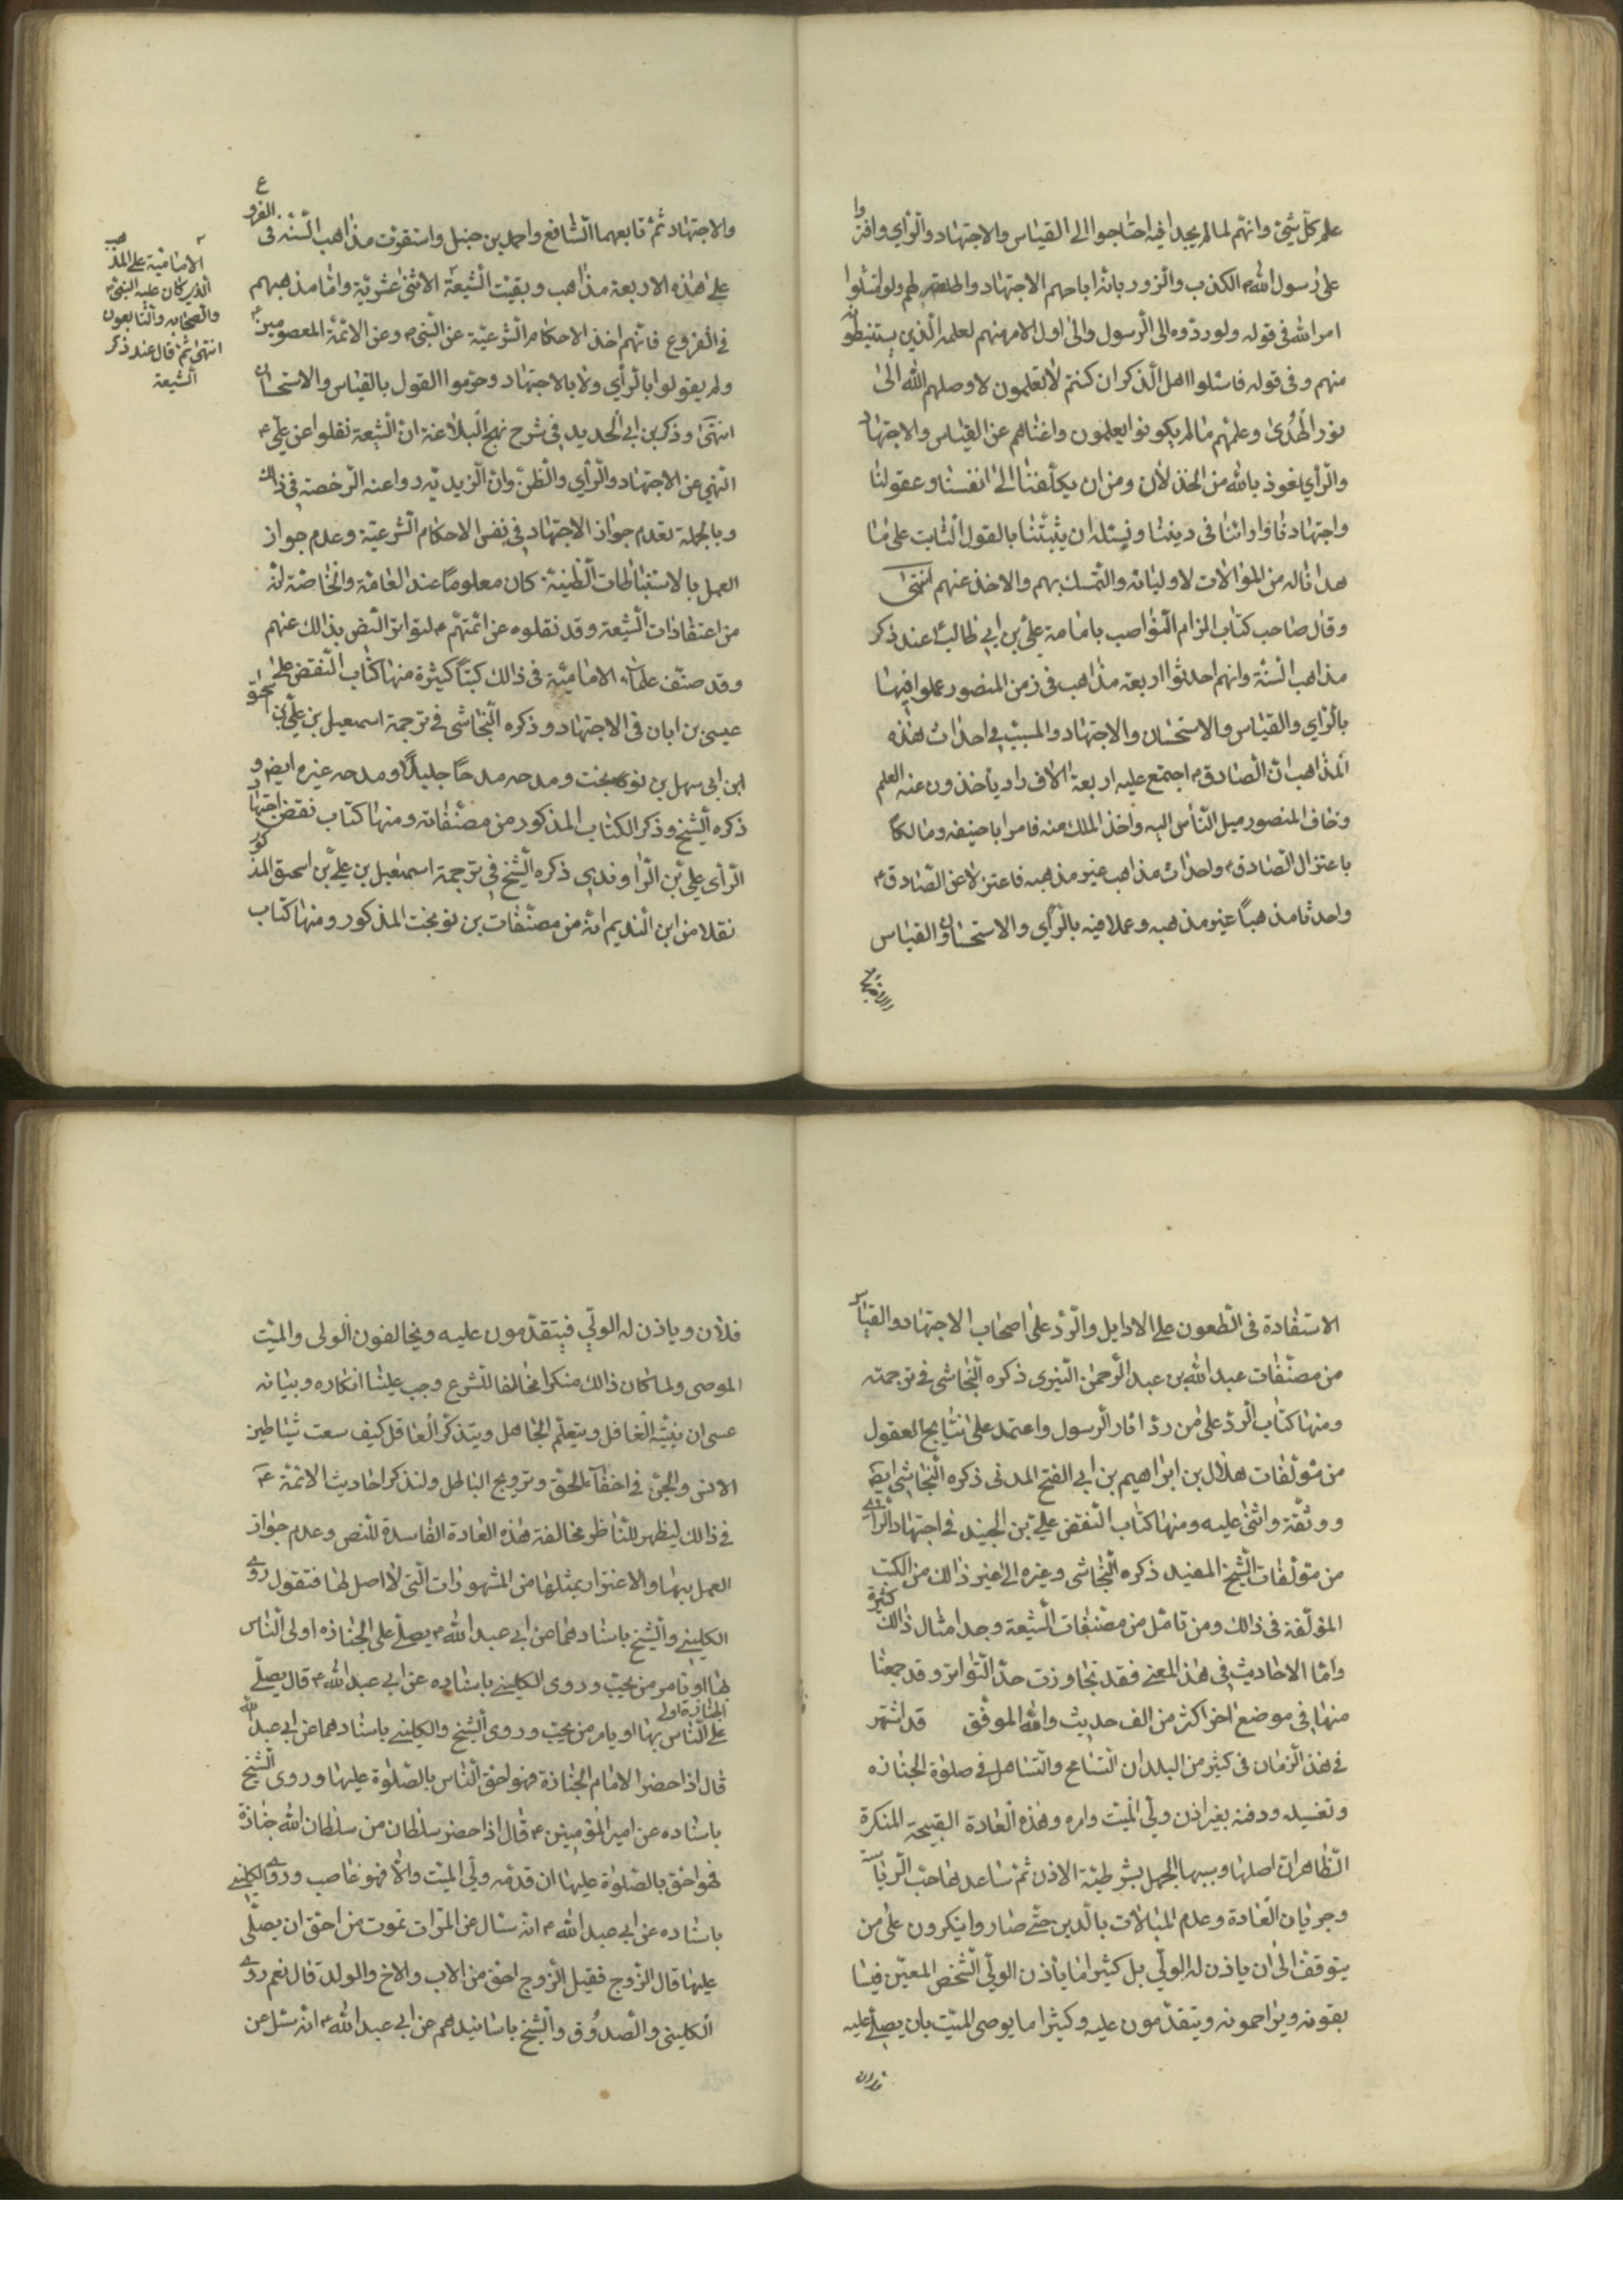 علم كلّ شئ وانهم لما لم يجدا فيه احتاجوا الى القياس والاجتهاد والرأي وافتروا
على رسول الله ص الكذب والزور بانه اباحهم الاجتهاد واطلقه لهم ولو امتثلوا
امر الله فى قوله ولو ردّوه الى الرسول والى اولى الامر منهم لعلمه الذين يستنبطونه
منهم وفى قوله فاسئلوا اهل الذكر ان كنتم لا تعلمون لاوصلهم الله الى
نور الهُدى وعلمهم ما لم يكونوا يعلمون واغناهم عن القياس والاجتهاد
والرأي نعوذ بالله من الخذلان ومن ان يكلّفنا الى انفسنا وعقولنا
واجتهادنا وارائنا فى ديننا ونسئله ان يثبّتنا بالقول الثابت على ما
هدانا له من الموالات لاوليائه والتمسك بهم والاخذ عنهم انتهى
وقال صاحب كتاب الزام النواصب بامامة علىّ بن ابى طالب ع عند ذكر
مذاهب السنة وانهم احدثوا اربعة مذاهب فى زمن المنصور عملوا فيها
بالرأي والقياس والاستحسان والاجتهاد والسبب فى احداث هذه
المذاهب ان الصادق ع اجتمع عليه اربعة الاف راو ياخذون عنه العلم
وخاف المنصور ميل الناس اليه واخذ الملك منه فامر ابا حنيفه ومالكا
باعتزال الصادق ع واحداث مذاهب غير مذهبه فاعتزلا عن الصادق ع
واحدثا مذهباً غير مذهبه وعملا فيه بالرأي والاستحسان والقياس
والاجتهاد ثمّ تابعهما الشافع واحمد بن حنبل واستقرت مذاهب السنه فى الفروع
على هذه الاربعة مذاهب وبقيت الشيعة الاثنى عشريّة وامّا مذهبهم
فى الفروع فانهم اخذ الاحكام الشرعيّة عن النبى ص وعن الائمّة المعصومين ع
ولم يقولوا بالرأي ولا بالاجتهاد وحرّموا القول بالقياس والاستحسان
انتهى وذكر بن ابى الحديد فى شرح نهج البلاغة ان الشيعة نقلوا عن علىّ ع
النهى عن الاجتهاد والرأي والظنّ وان الزيديّه رووا عنه الرخصة فى ذالك
وبالجملة تعدم جواز الاجتهاد فى نفس الاحكام الشرعيّة وعدم جواز
العمل بالاستنباطات الظنية كان معلوماً عند العامّة والخاصّة انّه
من اعتقادات الشيعة وقد نقلوه عن ائمتهم ع لتواتر النص بذالك عنهم
وقد صنّف علماء الاماميّة فى ذالك كتباً كثيرة منها كتاب النقض على
عيسى بن ابان فى الاجتهاد وذكره النجاشى فى ترجمة اسمعيل بن على بن اسحق
ابن ابى سهل بن نوبخت ومدحه مدحاً جليلاً ومدحه غيره ايضا و
ذكره الشيخ وذكر الكتاب المذكور من مصنّفاته ومنها كتاب نقض اجتهاد
الرأى على بن الراوندى ذكره الشيخ فى ترجمة اسمعيل بن على بن اسحق المذكور
نقلا من ابن النديم انه من مصنّفات بن نوبخت المذكور ومنها كتاب
الامامية على المذهب
الذى كان عليه النبى ص
والصحابه والتابعون
انتهى ثمّ قال عند ذكر
الشيعة
الاستفادة فى الطعون على الاوايل والردّ على اصحاب الاجتهاد والقياس
من مصنّفات عبد الله بن عبد الرحمن التيرى ذكره النجاشى فى ترجمته
ومنها كتاب الرد على من ردّ اثار الرسول واعتمد على نتايج العقول
من مؤلّفات هلال بن ابراهيم بن ابى الفتح المدنى ذكره النجاشى ايضا
ووثّقة واثنى عليه ومنها كتاب النقض على بن الجنيد فى اجتهاد الرأى
من مؤلّفات الشيخ المفيد ذكره النجاشى وغيره الى غير ذالك من الكتب
المؤلّفة فى ذالك ومن تامّل من مصنّفات الشيعة وجد امثال ذالك كثيرة
وامّا الاحاديث فى هذا المعنى فقد تجاوزت حدّ التواتر وقد جمعنا
منها فى موضع اخر اكثر من الف حديث والله الموفّق قد اشتهر
فى هذ الزمان فى كثير من البلدان التسامح والتساهل فى صلوة الجنازه
وتغسيله ودفنه بغير اذن ولى الميّت وامره وهذه العادة القبيحة المنكرة
الظاهر ان اصلها وسببها الجهل بشرطيّة الاذن ثمّ ساعدها حبّ الرياسة
وجريان العادة وعدم المبالات بالدين حتّى صاروا ينكرون على من
يتوقف الى ان ياذن له الولّى بل كثيرا ما يأذن الولّى الشخص المعيّن فيسا
بقونه ويزاحمونه ويتقدّمون عليه وكثيرا ما يوصى الميّت بان يصلّى عليه
فلان
فلان وياذن له الولّى فيتقدّمون عليه ويخالفون الولى والميّت
الموصى ولما كان ذالك منكرا مخالفا للشرع وجب علينا انكاره وبيانه
عسى ان ينبّه الغافل ويتعلّم الجاهل ويتذكّر العاقل كيف سعت شياطين
الانس والجنّ فى اخفاء الحقّ وترويج الباطل ولنذكر احاديث الائمّة ع
فى ذالك ليظهر للناظر مخالفة هذه العادة الفاسدة للنص وعدم جواز
العمل بها والاغترار بمثلها من المشهورات التى لا اصل لها فتقول روى
الكلينى والشيخ باسنادهما عن ابى عبد الله ع يصلّى على الجنازه اولى الناس
بها او يامر من يحبّ وروى الكلينى باسناده عن ابى عبد الله ع قال يصلّى
على الجنازة اولى الناس بها او يامر من يحبّ وروى الشيخ والكلينى باسنادهما عن ابى عبد الله
قال اذا حضر الامام الجنازة فهو احق الناس بالصّلوة عليها وروى الشيخ
باسناده عن امير المؤمنين ع قال اذا حضر سلطان من سلطان الله جنازة
فهو احقّ بالصّلوة عليها ان قدّمه ولى الميّت والّا فهو غاصب وروى الكلينى
باسناده عن ابى عبد الله ع انه سئال عن المرات تموت من احق ان يصلّى
عليها قال الزوج فقيل الزوج احق من الاب والاخ والولد قال نعم روى
الكلينى والصدوق والشيخ باسانيدهم عن ابى عبد الله ع انه سئل عن